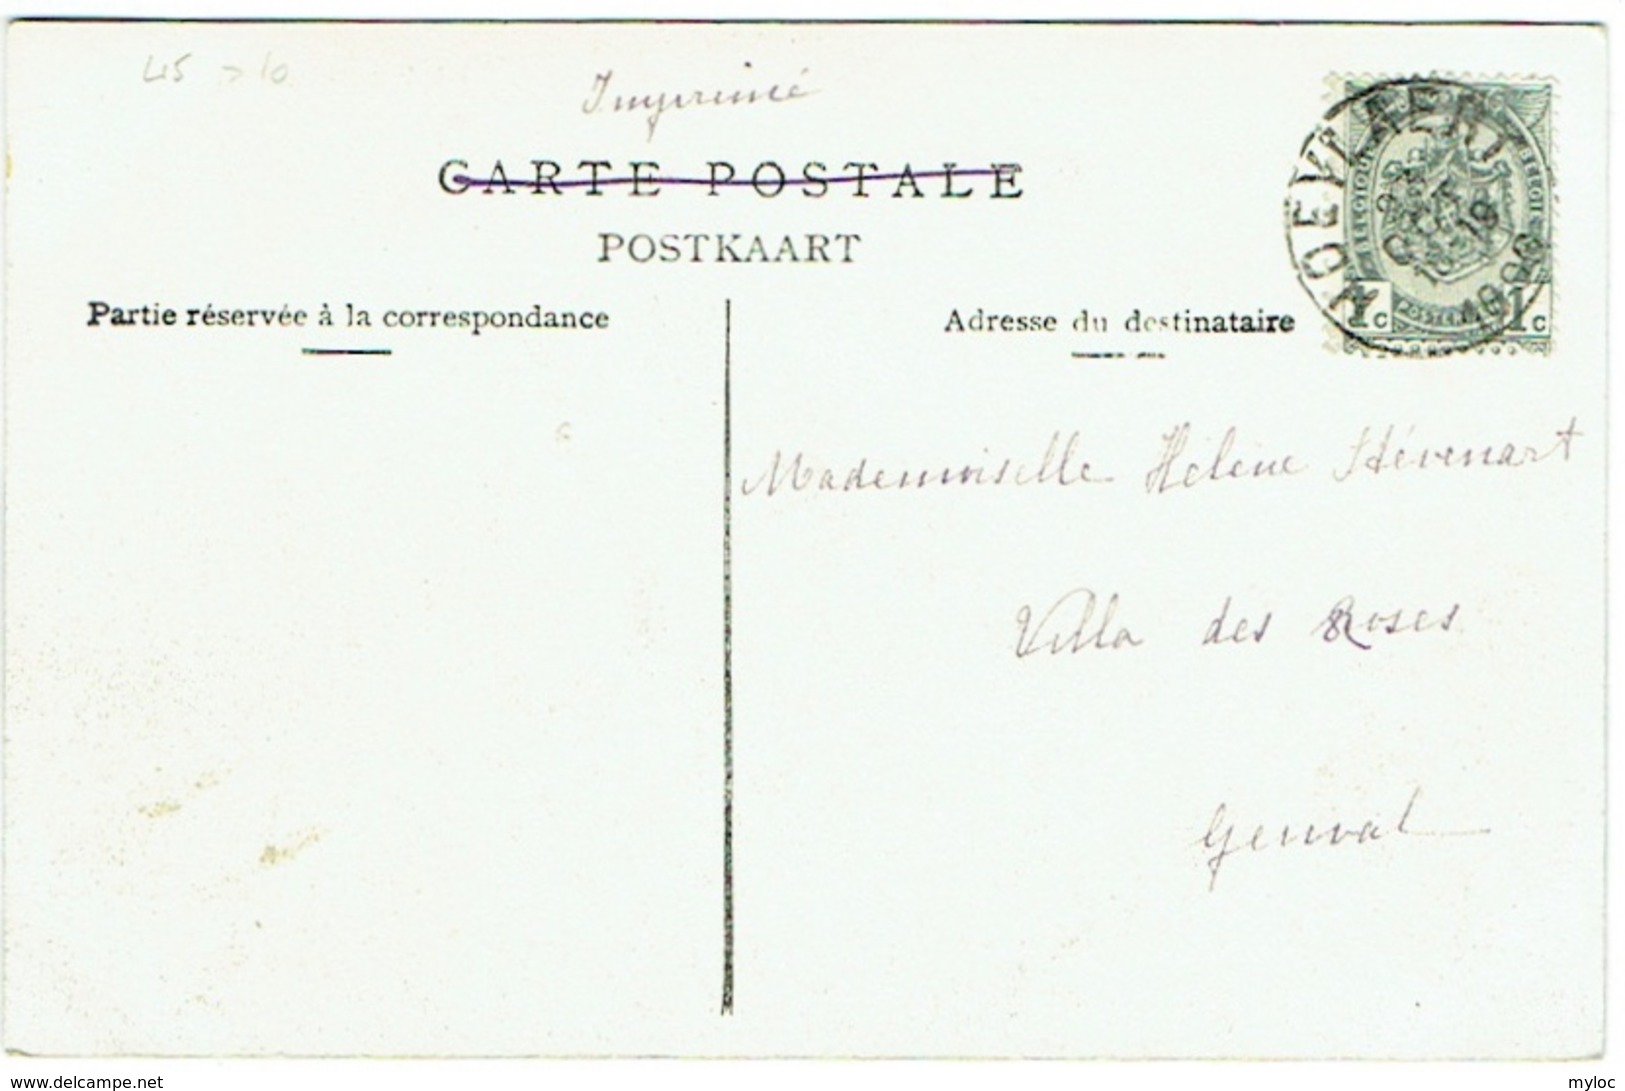 45 > 10
Imprimé
CARTE POSTALE
POSTKAART
Partie réservée à la correspondance
Adresse du destinataire
HOEYLAERT
OCT
19
1906
BELGIQUE
BELGIË
1c 1c
Mademoiselle Hélène Stévenart
Villa des Roses
Genval
www.delcampe.net
myloc